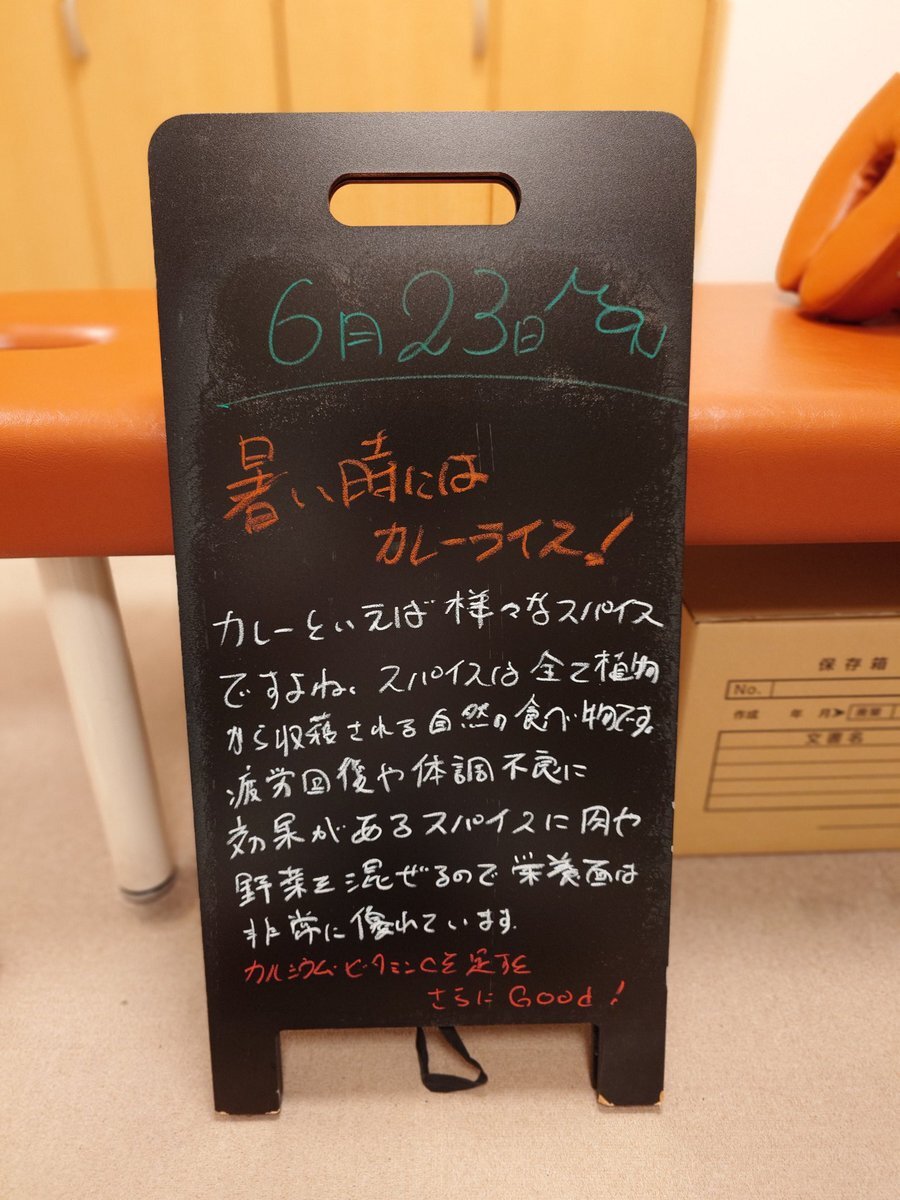 6月23日 Mon
暑い時には
カレーライス!
カレーといえば様々なスパイス
ですよね、スパイスは全て植物
から収穫される自然の食べ物です。
疲労回復や体調不良に
効果があるスパイスに肉や
野菜を混ぜるので栄養面は
非常に優れています。
カルシウム・ビタミンCを足すと
さらにGood!
保存箱
No.
作成 年 月
文書名